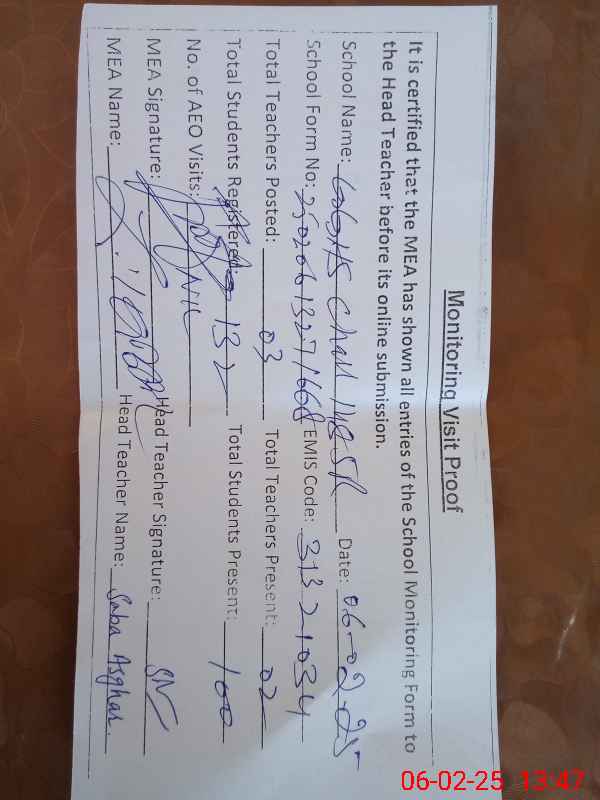 Monitoring Visit Proof
It is certified that the MEA has shown all entries of the School Monitoring Form to
the Head Teacher before its online submission.
School Name: Chak 148 SR Date: 06-02-25
School Form No: EMIS Code: 31321034
Total Teachers Posted: 03 Total Teachers Present: 02
Total Students Registered: 132 Total Students Present: 100
No. of AEO Visits: NIL
MEA Signature: Head Teacher Signature:
MEA Name: Head Teacher Name: Saba Asghar.
06-02-25 13:47